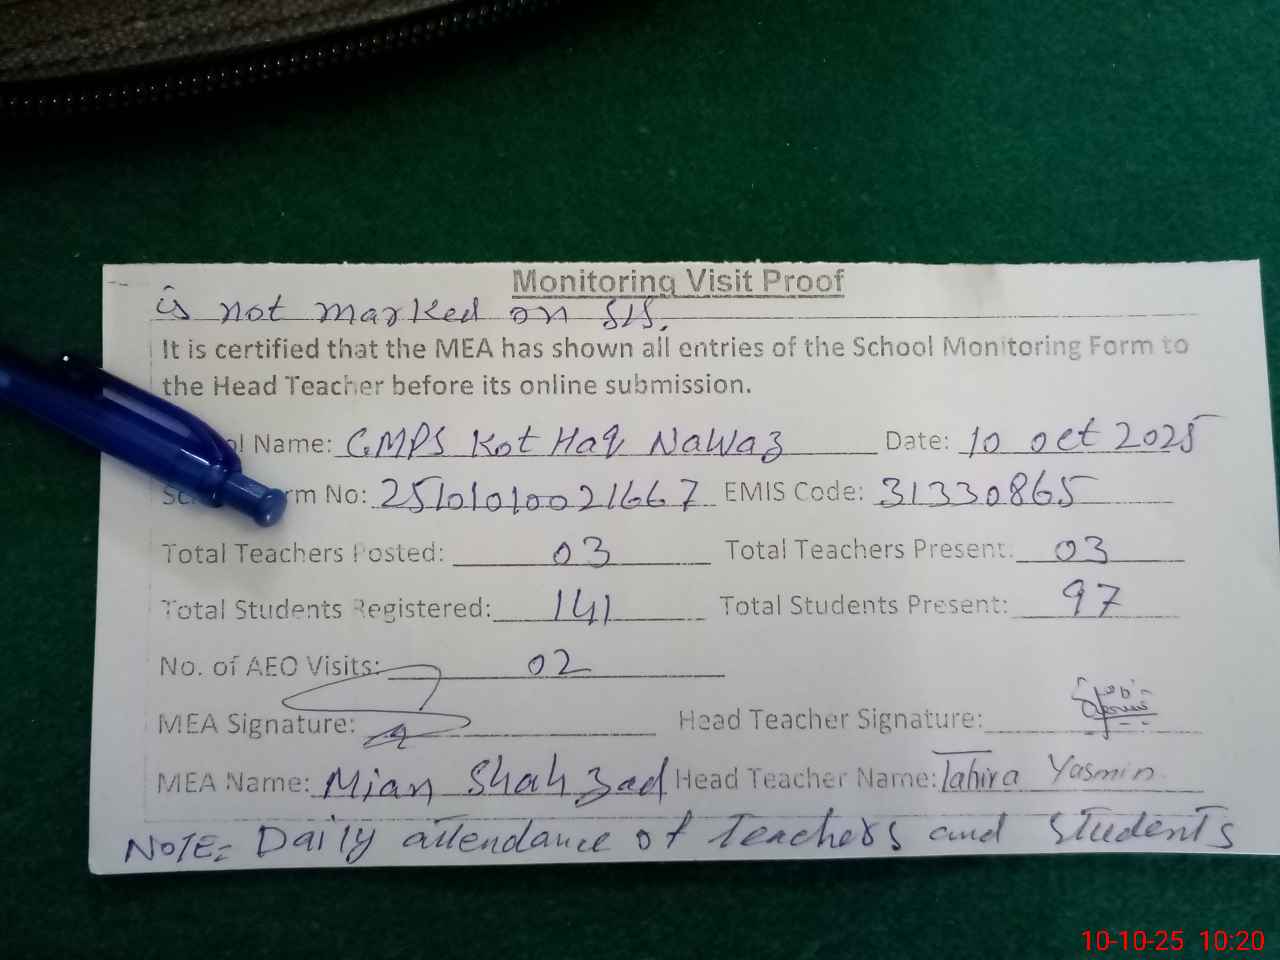 Monitoring Visit Proof
is not marked on SIS.
It is certified that the MEA has shown all entries of the School Monitoring Form to
the Head Teacher before its online submission.
ol Name: GMPS Kot Haq Nawaz Date: 10 oct 2025
Sc rm No: 25101010021667 EMIS Code: 31330865
Total Teachers Posted: 03 Total Teachers Present: 03
Total Students Registered: 141 Total Students Present: 97
No. of AEO Visits: 02
MEA Signature: Head Teacher Signature:
MEA Name: Mian Shahzad Head Teacher Name: Tahira Yasmin
NOTE= Daily attendance of Teachers and Students
10-10-25 10:20